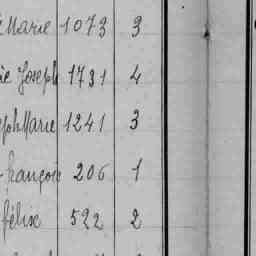 Marie 1073 3
ie Joseph 1731 4
eph Marie 1241 3
françois 206 1
félix 522 2